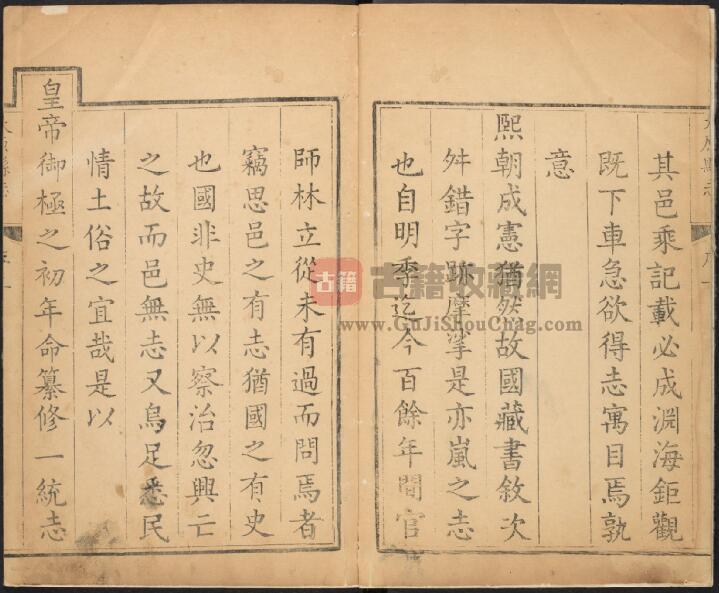 其邑乘記載必成淵海鉅觀
既下車急欲得志寓目焉孰
意
熙朝成憲猶然故國藏書敘次
舛錯字跡摩挲是亦嵐之志
也自明季迄今百餘年間官
師林立從未有過而問焉者
竊思邑之有志猶國之有史
也國非史無以察治忽興亡
之故而邑無志又烏足悉民
情土俗之宜哉是以
皇帝御極之初年命纂修一統志
古籍 古籍收藏網
www.GuJiShouCang.com